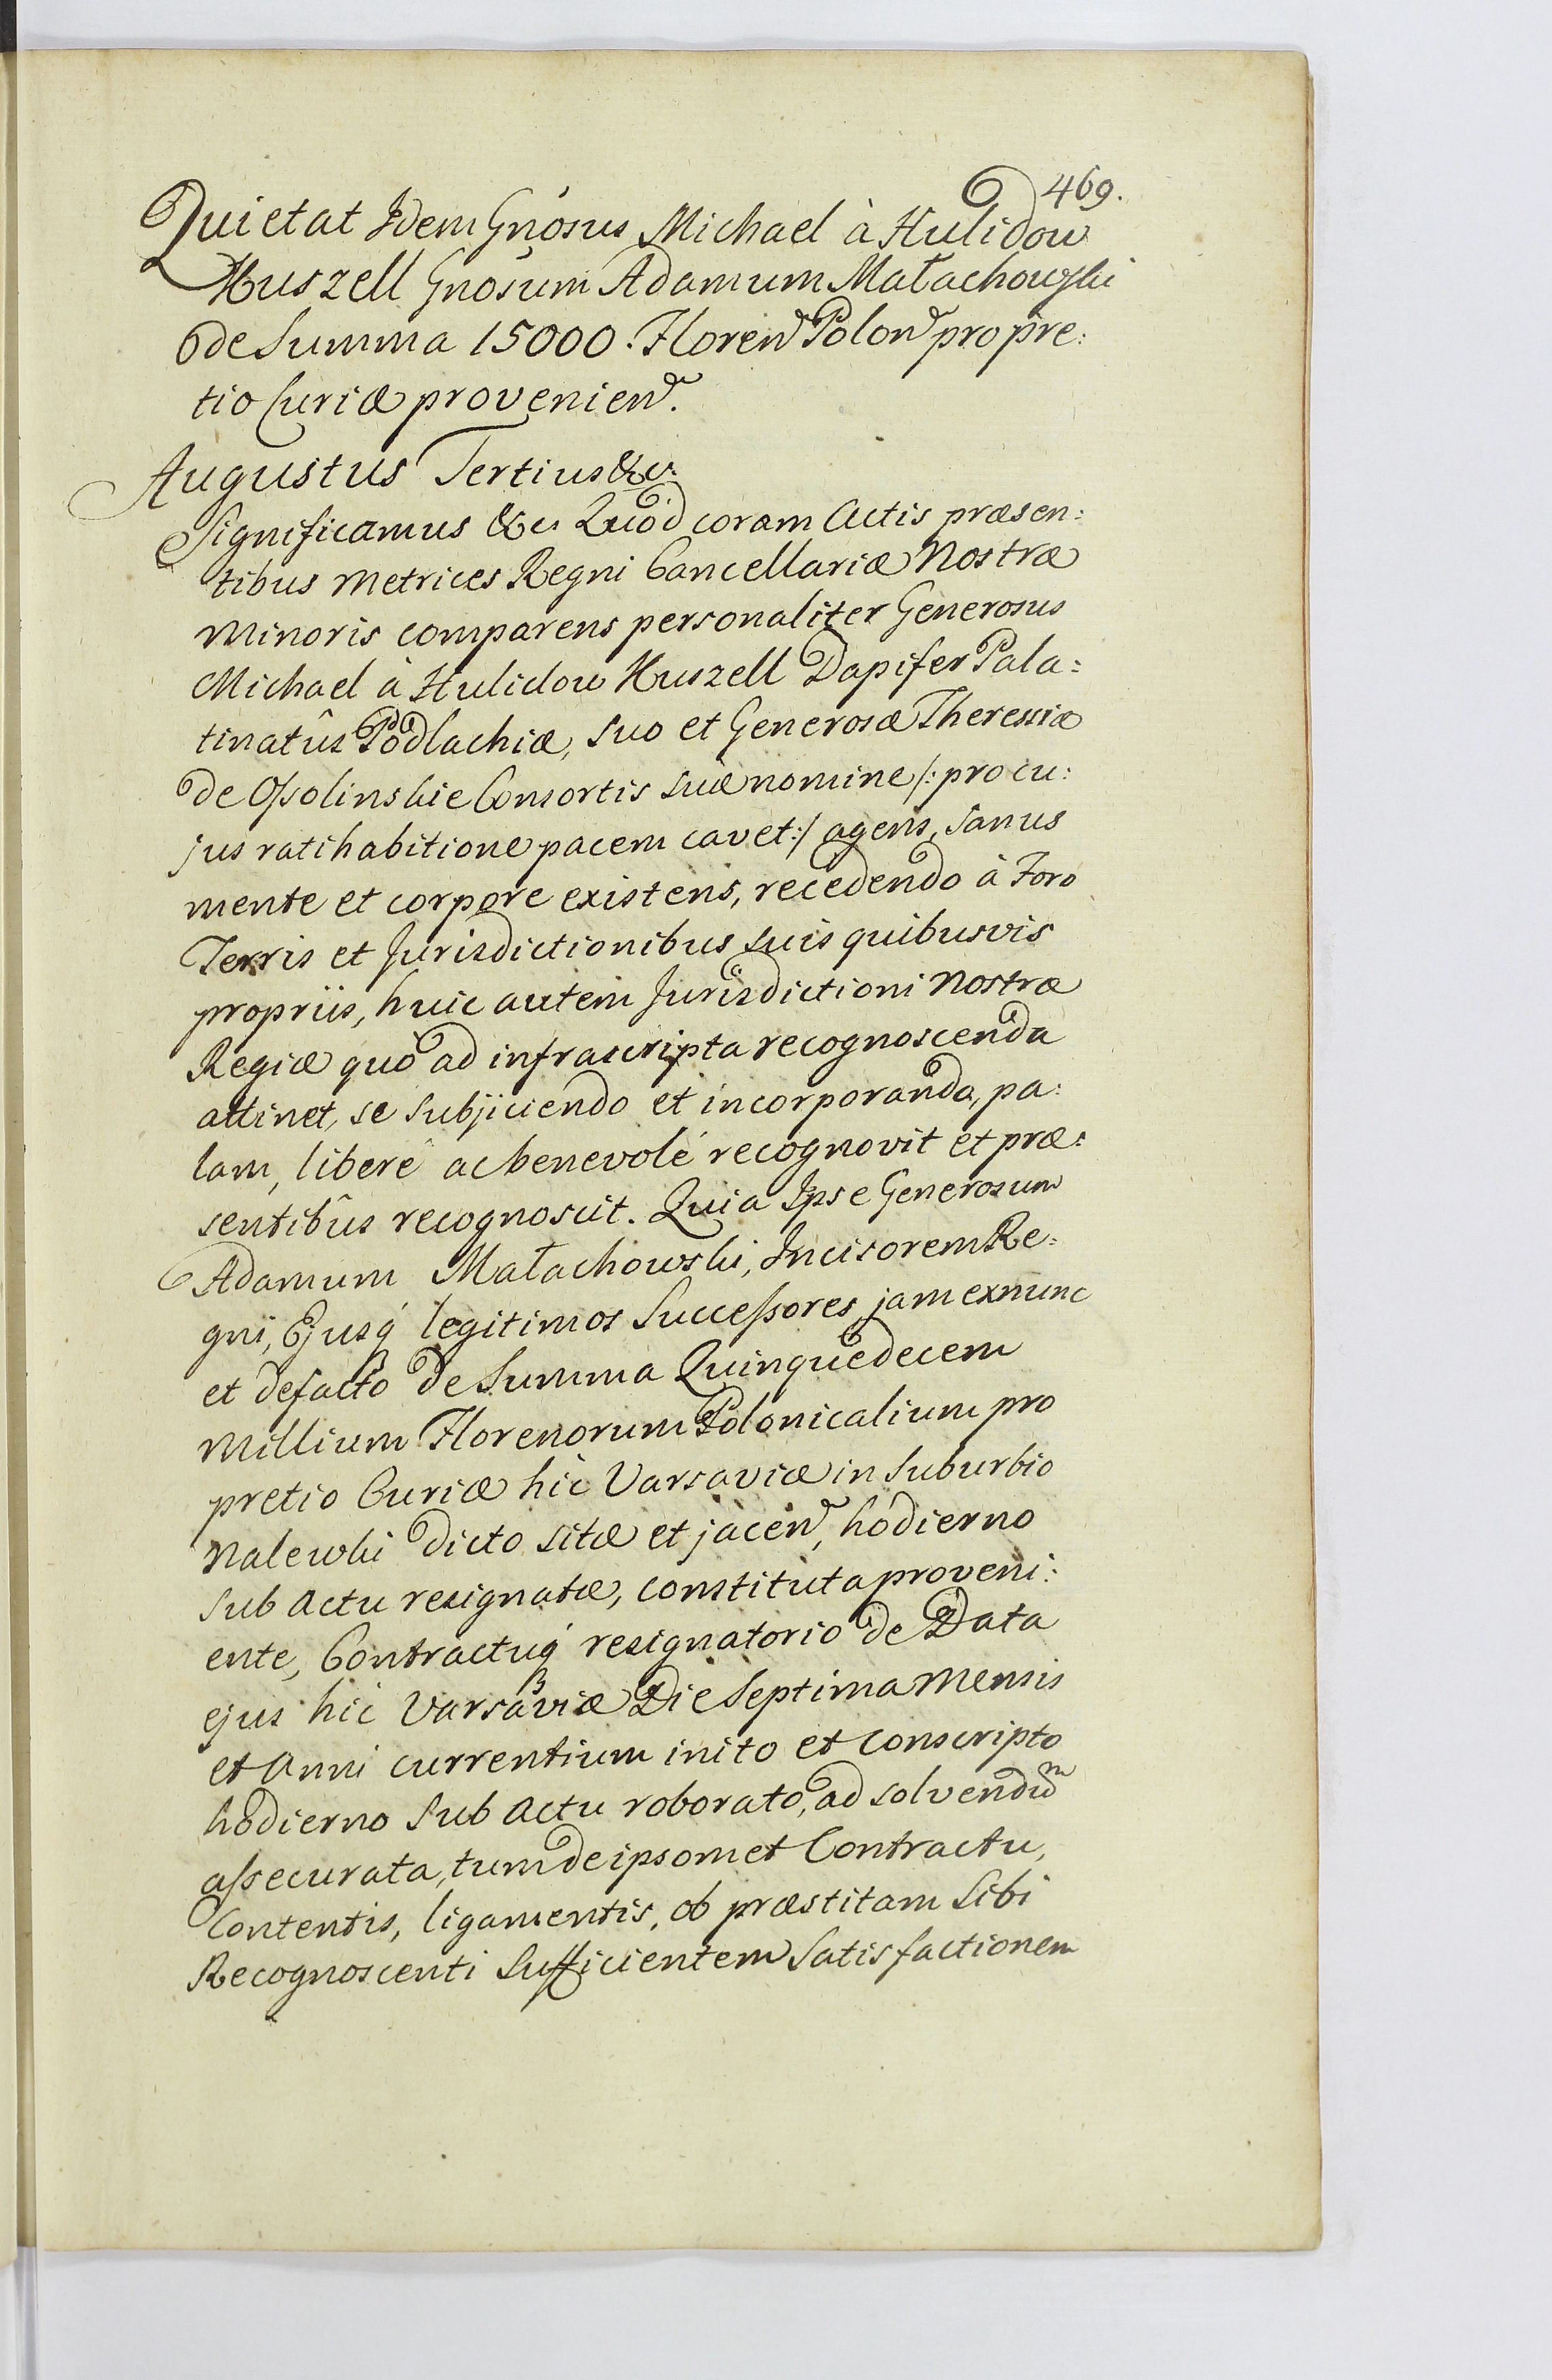 469.
Quietat Idem Gnosus Michael à Hulidow
Huszell Gnosum Adamum Małachowski
de Summa 15000. Floren Polon pro pre:
tio Curiæ provenien.
Augustus Tertius &c.
Significamus &c. Quòd coram Actis præsen:
tibus Metrices Regni Cancellariæ Nostræ
Minoris comparens personaliter Generosus
Michael à Hulidow Huszell Dapifer Pala:
tinatûs Podlachiæ, suo et Generosæ Theressiæ
de Ossolinskie Consortis suæ nomine /: pro cu:
jus ratihabitione pacem cavet :/ agens, sanus
mente et corpore existens, recedendo à Foro
Terris et Jurisdictionibus suis quibusvis
propriis, huic autem Jurisdictioni Nostræ
Regiæ quò ad infrascripta recognoscenda
attinet, se subjiciendo et incorporando, pa:
lam, liberè ac benevolè recognovit et præ:
sentibûs recognoscit. Quia Ipse Generosum
Adamum Małachowski, Incisorem Re:
gni, Ejusq́ legitimos Successores jam exnunc
et defacto de Summa Quinquedecem
Millium Florenorum Polonicalium pro
pretio Curiæ hic Varsaviæ in Suburbio
Nalewki dicto sitæ et jacen, hodierno
sub Actu resignatæ, constituta proveni:
ente, Contractuq́ resignatorio de Data
ejus hic Varsaviæ Die Septima Mensis
et Anni currentium inito et conscripto
hodierno sub Actu roborato, ad solvendum
assecurata, tum de ipsomet Contractu,
Contentis, ligamentis, ob præstitam Sibi
Recognoscenti Sufficientem Satisfactionem